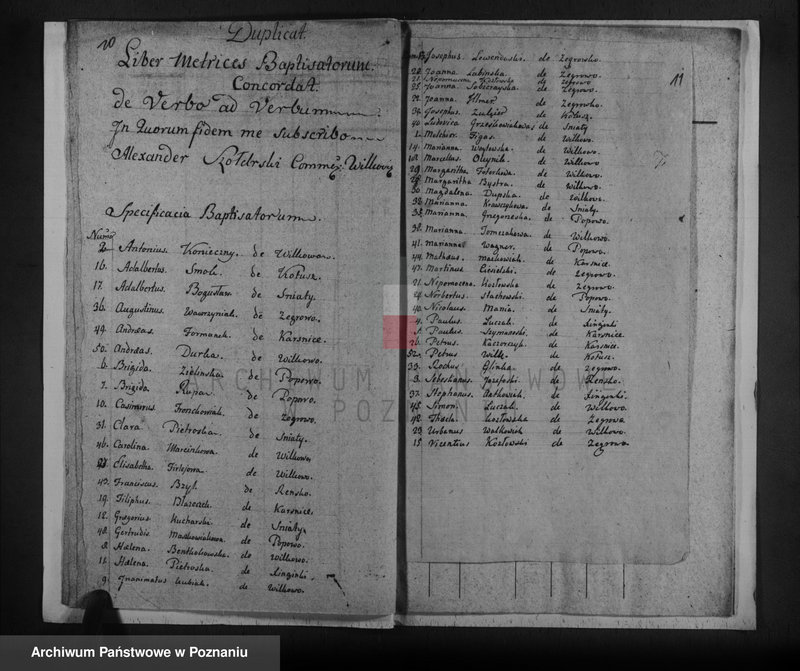 20
Duplicat.
Liber Metrices Baptisatorum.
Concordat.
de Verbo ad Verbum
In Quorum fidem me subscribo
Alexander Commen: Wilkov
Specificacia Baptisatorum.
Num
2. Antonius Konieczny. de Wilkowo.
16. Adalbertus. Smol. de Kotusz.
17. Adalbertus. Bogusław. de Sniaty.
36. Augustinus. Wawrzyniak. de Zegrowo.
49. Andræas. Formanek. de Karsnice.
50. Andræas. Durka. de Wilkowo.
6. Brigida. Zielinska. de Popowo.
7. Brigida. Rupar. de Popowo.
10. Casimirus. de Zegrowo.
31. Clara Pietroska. de Sniaty.
46. Carolina. Marcinkowa. de Wilkowo.
Elisabetha. de Wilkowo.
43. Franciscus. Bzyl. de Rensko.
19. Filiphus. Błaszczyk. de Karsnice.
12. Gregorius. Kucharski. de Sniaty.
48. Gertrudis. de Popowo.
8. Hælena. de Wilkowo.
11. Hælena. Pietroska. de
9. Inanimatus Kubiak. de Wilkowo.
11
Josephus Lewendowski. de Zegrowsko.
22. Joanna Labinska. de Zegrowo.
21. Nepomucena Kozłowska de Zegrowo
25. Joanna. de Zegrowo.
Joanna. Filmer de Zegrowsko.
Josephus. de Kotusz.
40. Ludovica de Sniaty
1. Melchior. Figas. de Wilkowo.
14. Marianna. Woytowska. de Wilkowo.
18. Marcellus. Oleynik. de Wilkowo
29. Margaritha de Wilkowo.
28. Margaritha Bystra. de Wilkowo.
30. Magdalena. Dupska. de Wilkowo.
32. Marianna. Krawczykowa. de Sniaty.
Marianna. de Popowo.
38. Marianna. Tomczakowa. de Wilkowo.
41. Marianna. Wagner. de Popowo.
44. Mathæus. Mackowiak. de Karsnice.
47. Martinus Cieielski. de Zegrowo.
21. Nepomocena Kozłowska de Zegrowo.
24. Norbertus. Stachowski. de Popowo.
40. Nicolaus. Mania. de Sniaty.
4. Paulus. Luczak. de
5. Paulus. Szymanski. de Karsnice.
26. Petrus. Kaczorczyk. de Karsnice.
52. Petrus Wilk. de Kotusz.
33. Rochus Glinka. de Zegrowo.
3. Sebestianus. Jozefoski. de Rensko.
37. Stephanus. Ratkowiak. de
45. Simon. Luczak. de Wilkowo.
42. Thecla. Kozłowska de Zegrowo.
23. Urbanus Walkowiak de Wilkowo.
15. Vicentius Kozłowski de Zegrowo.
ARCHIWUM PAŃSTWOWE
POZNAŃ
Archiwum Państwowe w Poznaniu